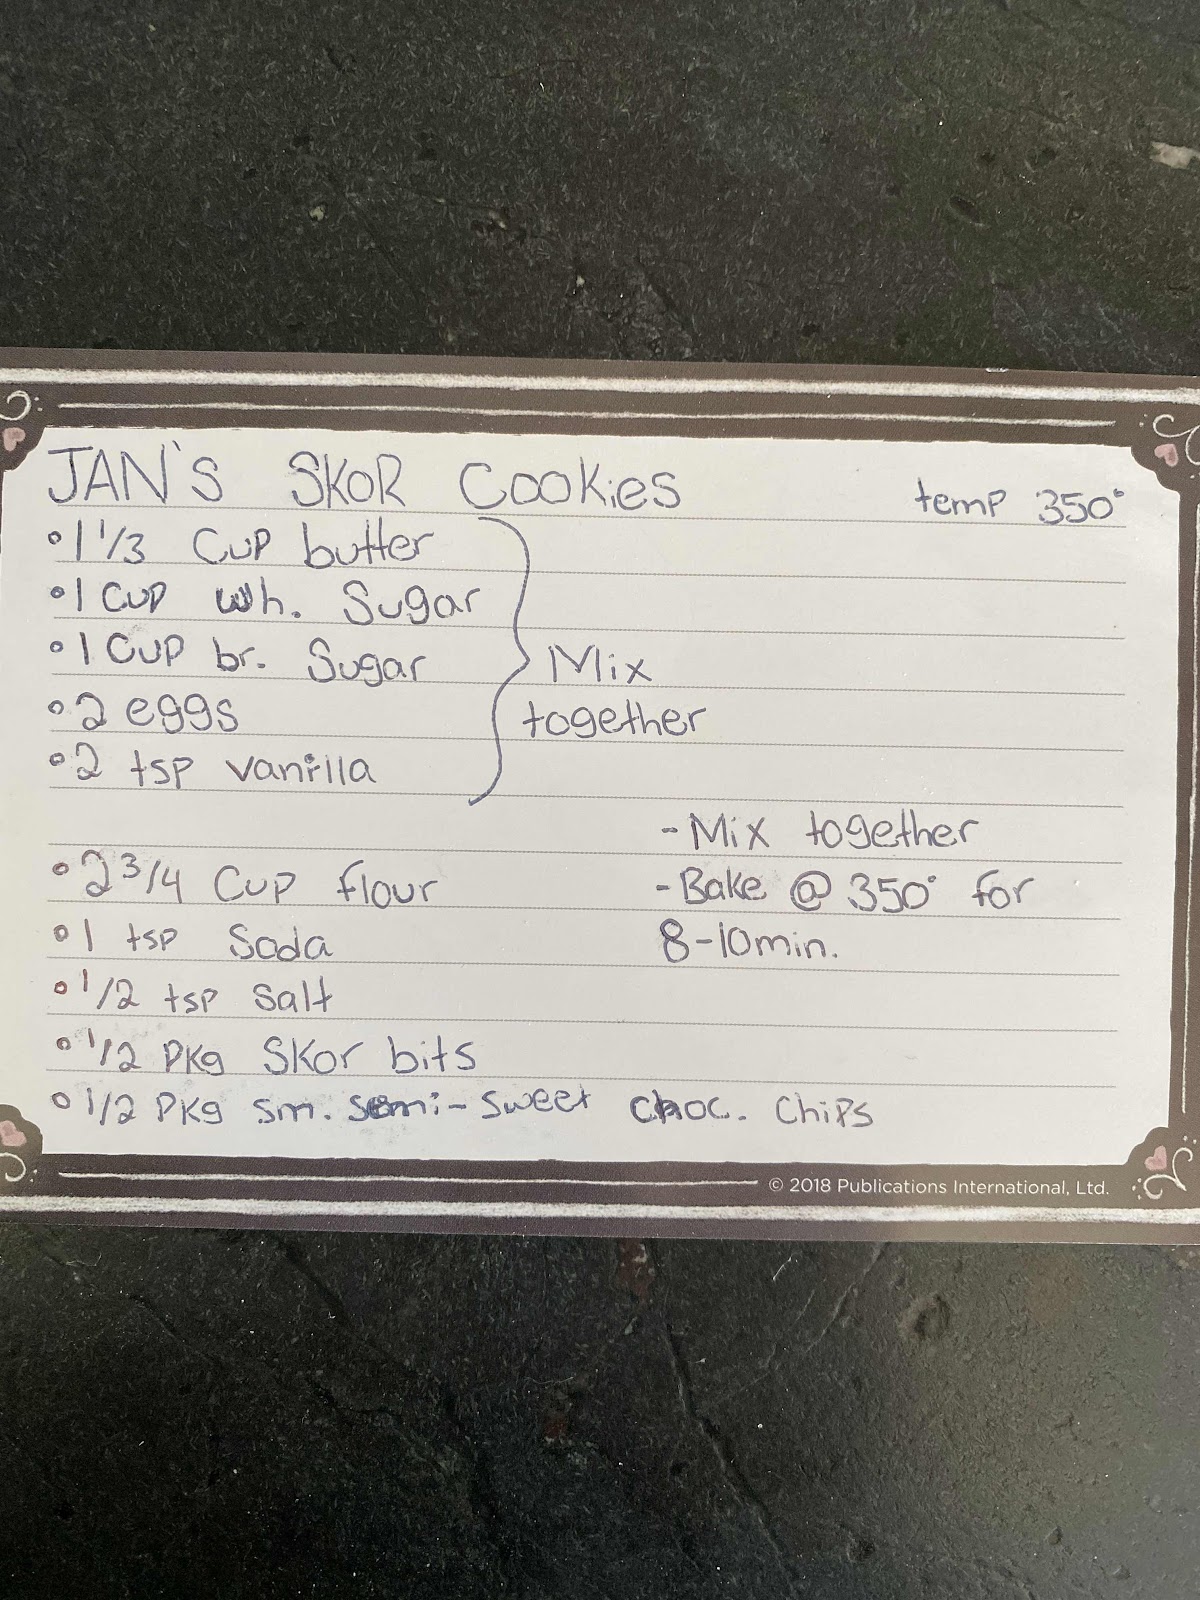 JAN'S SKOR Cookies temp 350°
• 1 1/3 Cup butter
• 1 Cup wh. Sugar
• 1 Cup br. Sugar
• 2 eggs
• 2 tsp vanilla
Mix
together
• 2 3/4 Cup flour
• 1 tsp Soda
• 1/2 tsp Salt
• 1/2 PKg SKor bits
• 1/2 PKg sm. semi-sweet choc. Chips
- Mix together
- Bake @ 350° for
8-10min.
© 2018 Publications International, Ltd.